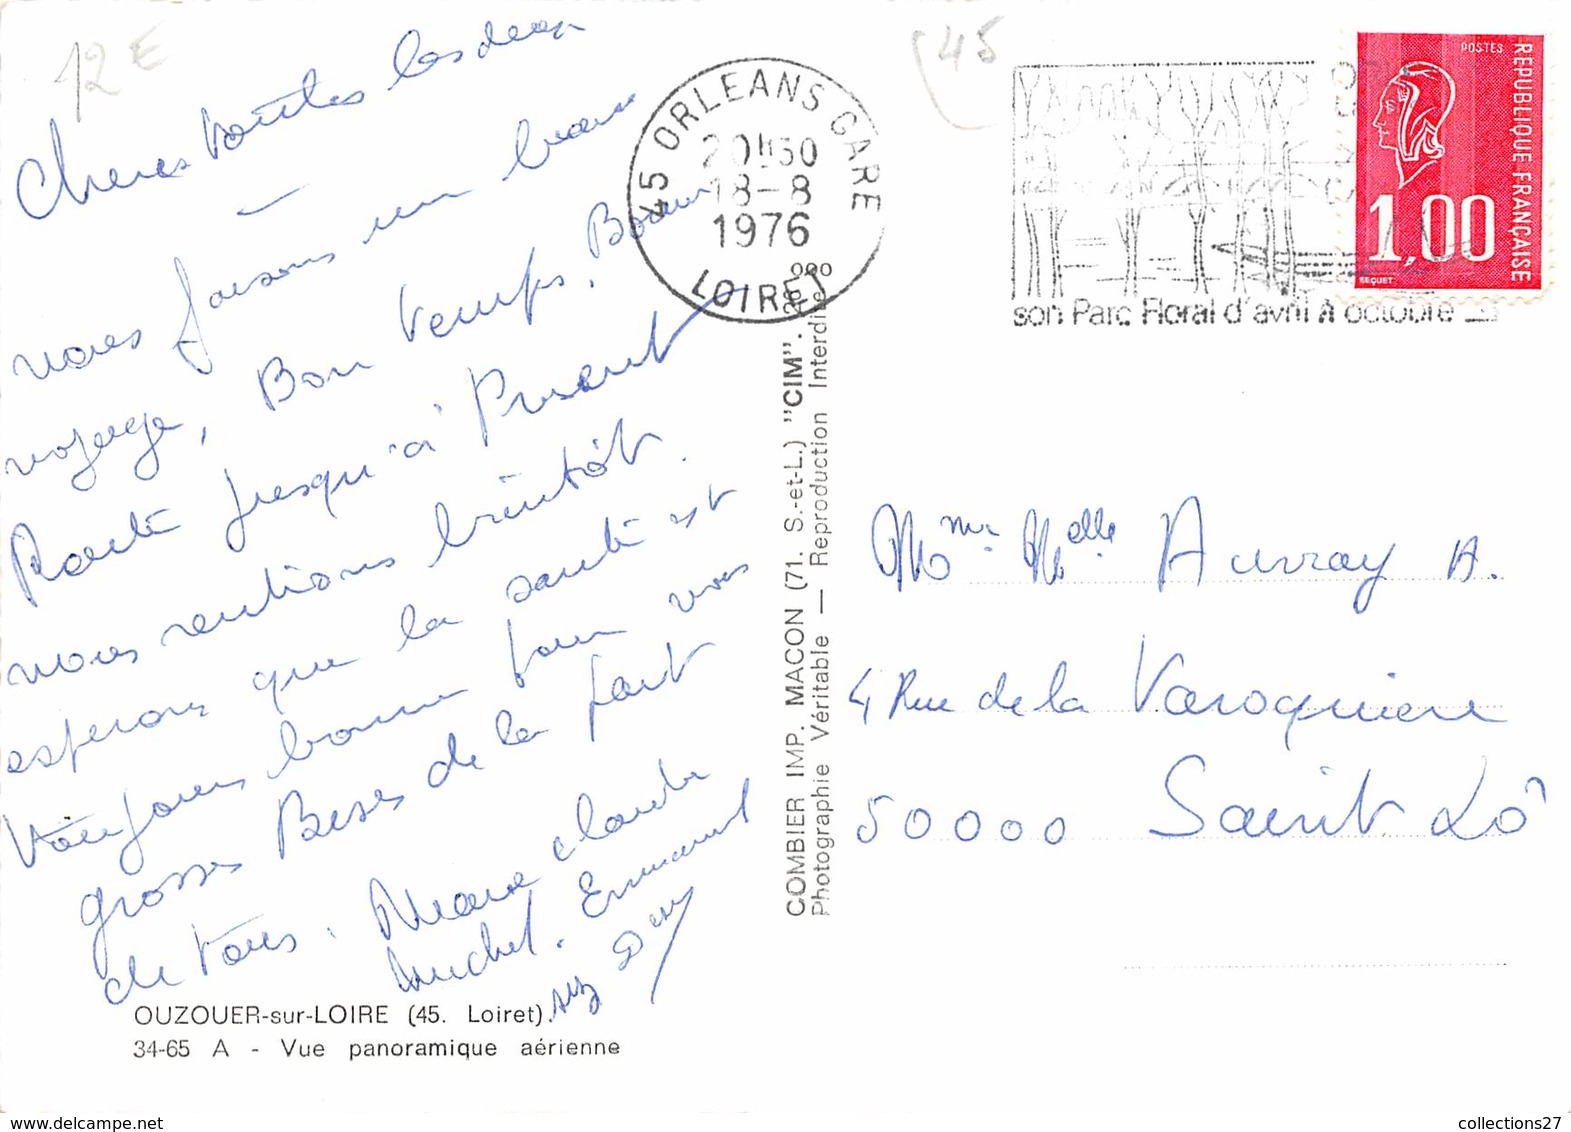 12€
45
Cheres toutes les deux
nous faisons un beau
voyage, Bon temps, Bonne
Route jusqu'à Present
nous rentrons bientôt.
esperons que la santé est
toujours bonne pour vous
grosses Bises de la part
de tous. Marie claude
Michel. Emmanuel
45 ORLEANS GARE
20H30
18-8
1976
LOIRET
son Parc Floral d'avril à octobre
POSTES
REPUBLIQUE FRANÇAISE
1,00
BEQUET
COMBIER IMP. MACON (71. S.-et-L.) "CIM".
Photographie Véritable — Reproduction Interdite
Mme Melle Auvray A.
4 Rue de la Varoquiere
50000 Saint Lô
OUZOUER-sur-LOIRE (45. Loiret)
34-65 A - Vue panoramique aérienne
collections27